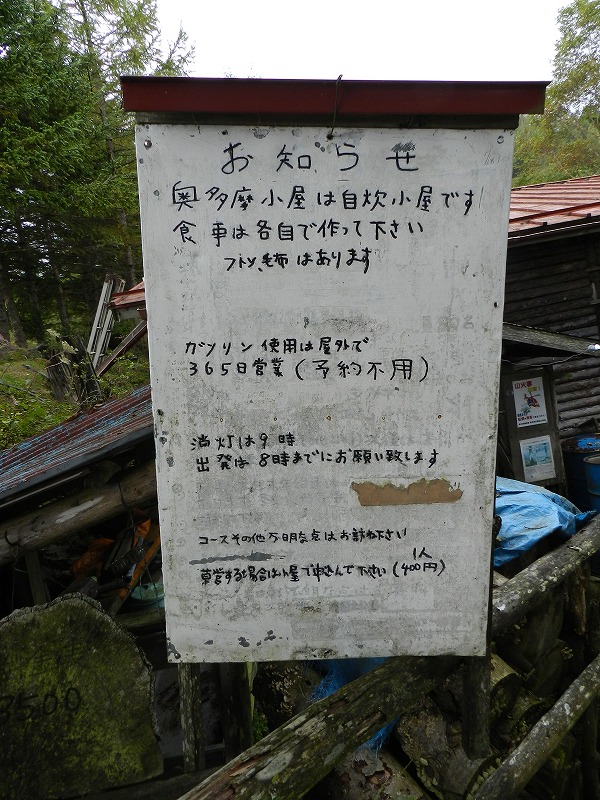 お知らせ
奥多摩小屋は自炊小屋です
食事は各自で作って下さい
フトン、毛布はあります
ガソリン使用は屋外で
365日営業(予約不用)
消灯は9時
出発は8時までにお願い致します
コースその他不明な点はお訪ね下さい
1人
幕営する場合は小屋で申込んで下さい(400円)
山火事
3500